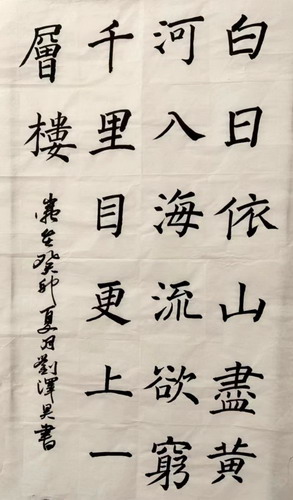 白日依山盡黃
河入海流欲窮
千里目更上一
層樓
歲在癸卯夏月劉澤書